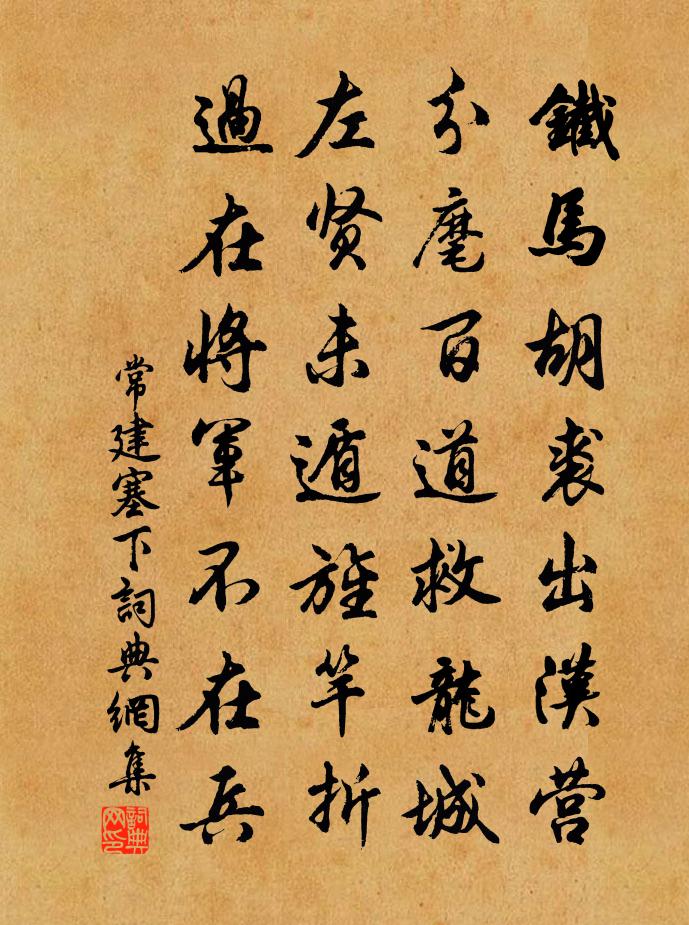 鐵馬胡裘出漢营
分麾百道救龍城
左贤未遁旌竿折
過在将軍不在兵
常建塞下詞典網集
詞典网印